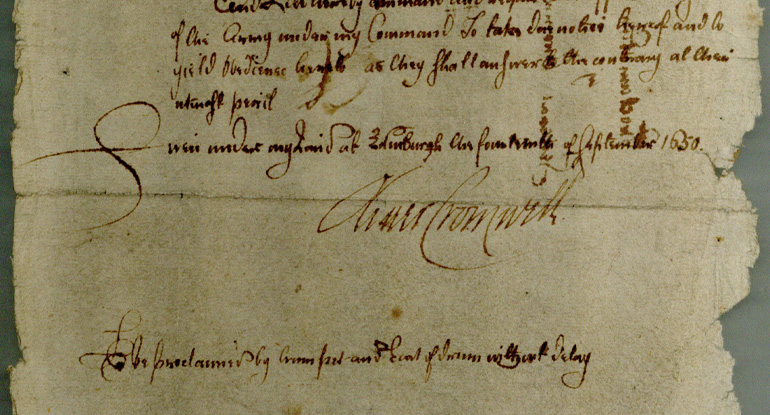 hereby Command and require
of the Army under my Command To take due notice hereof and to
yield obedience hereto as they shall answer the contrary at their
utmost peril
Given under my hand at Edinburgh the fourteenth of September 1650.
Oliver Cromwell
To be proclaimed by trumpet and beat of drum without delay